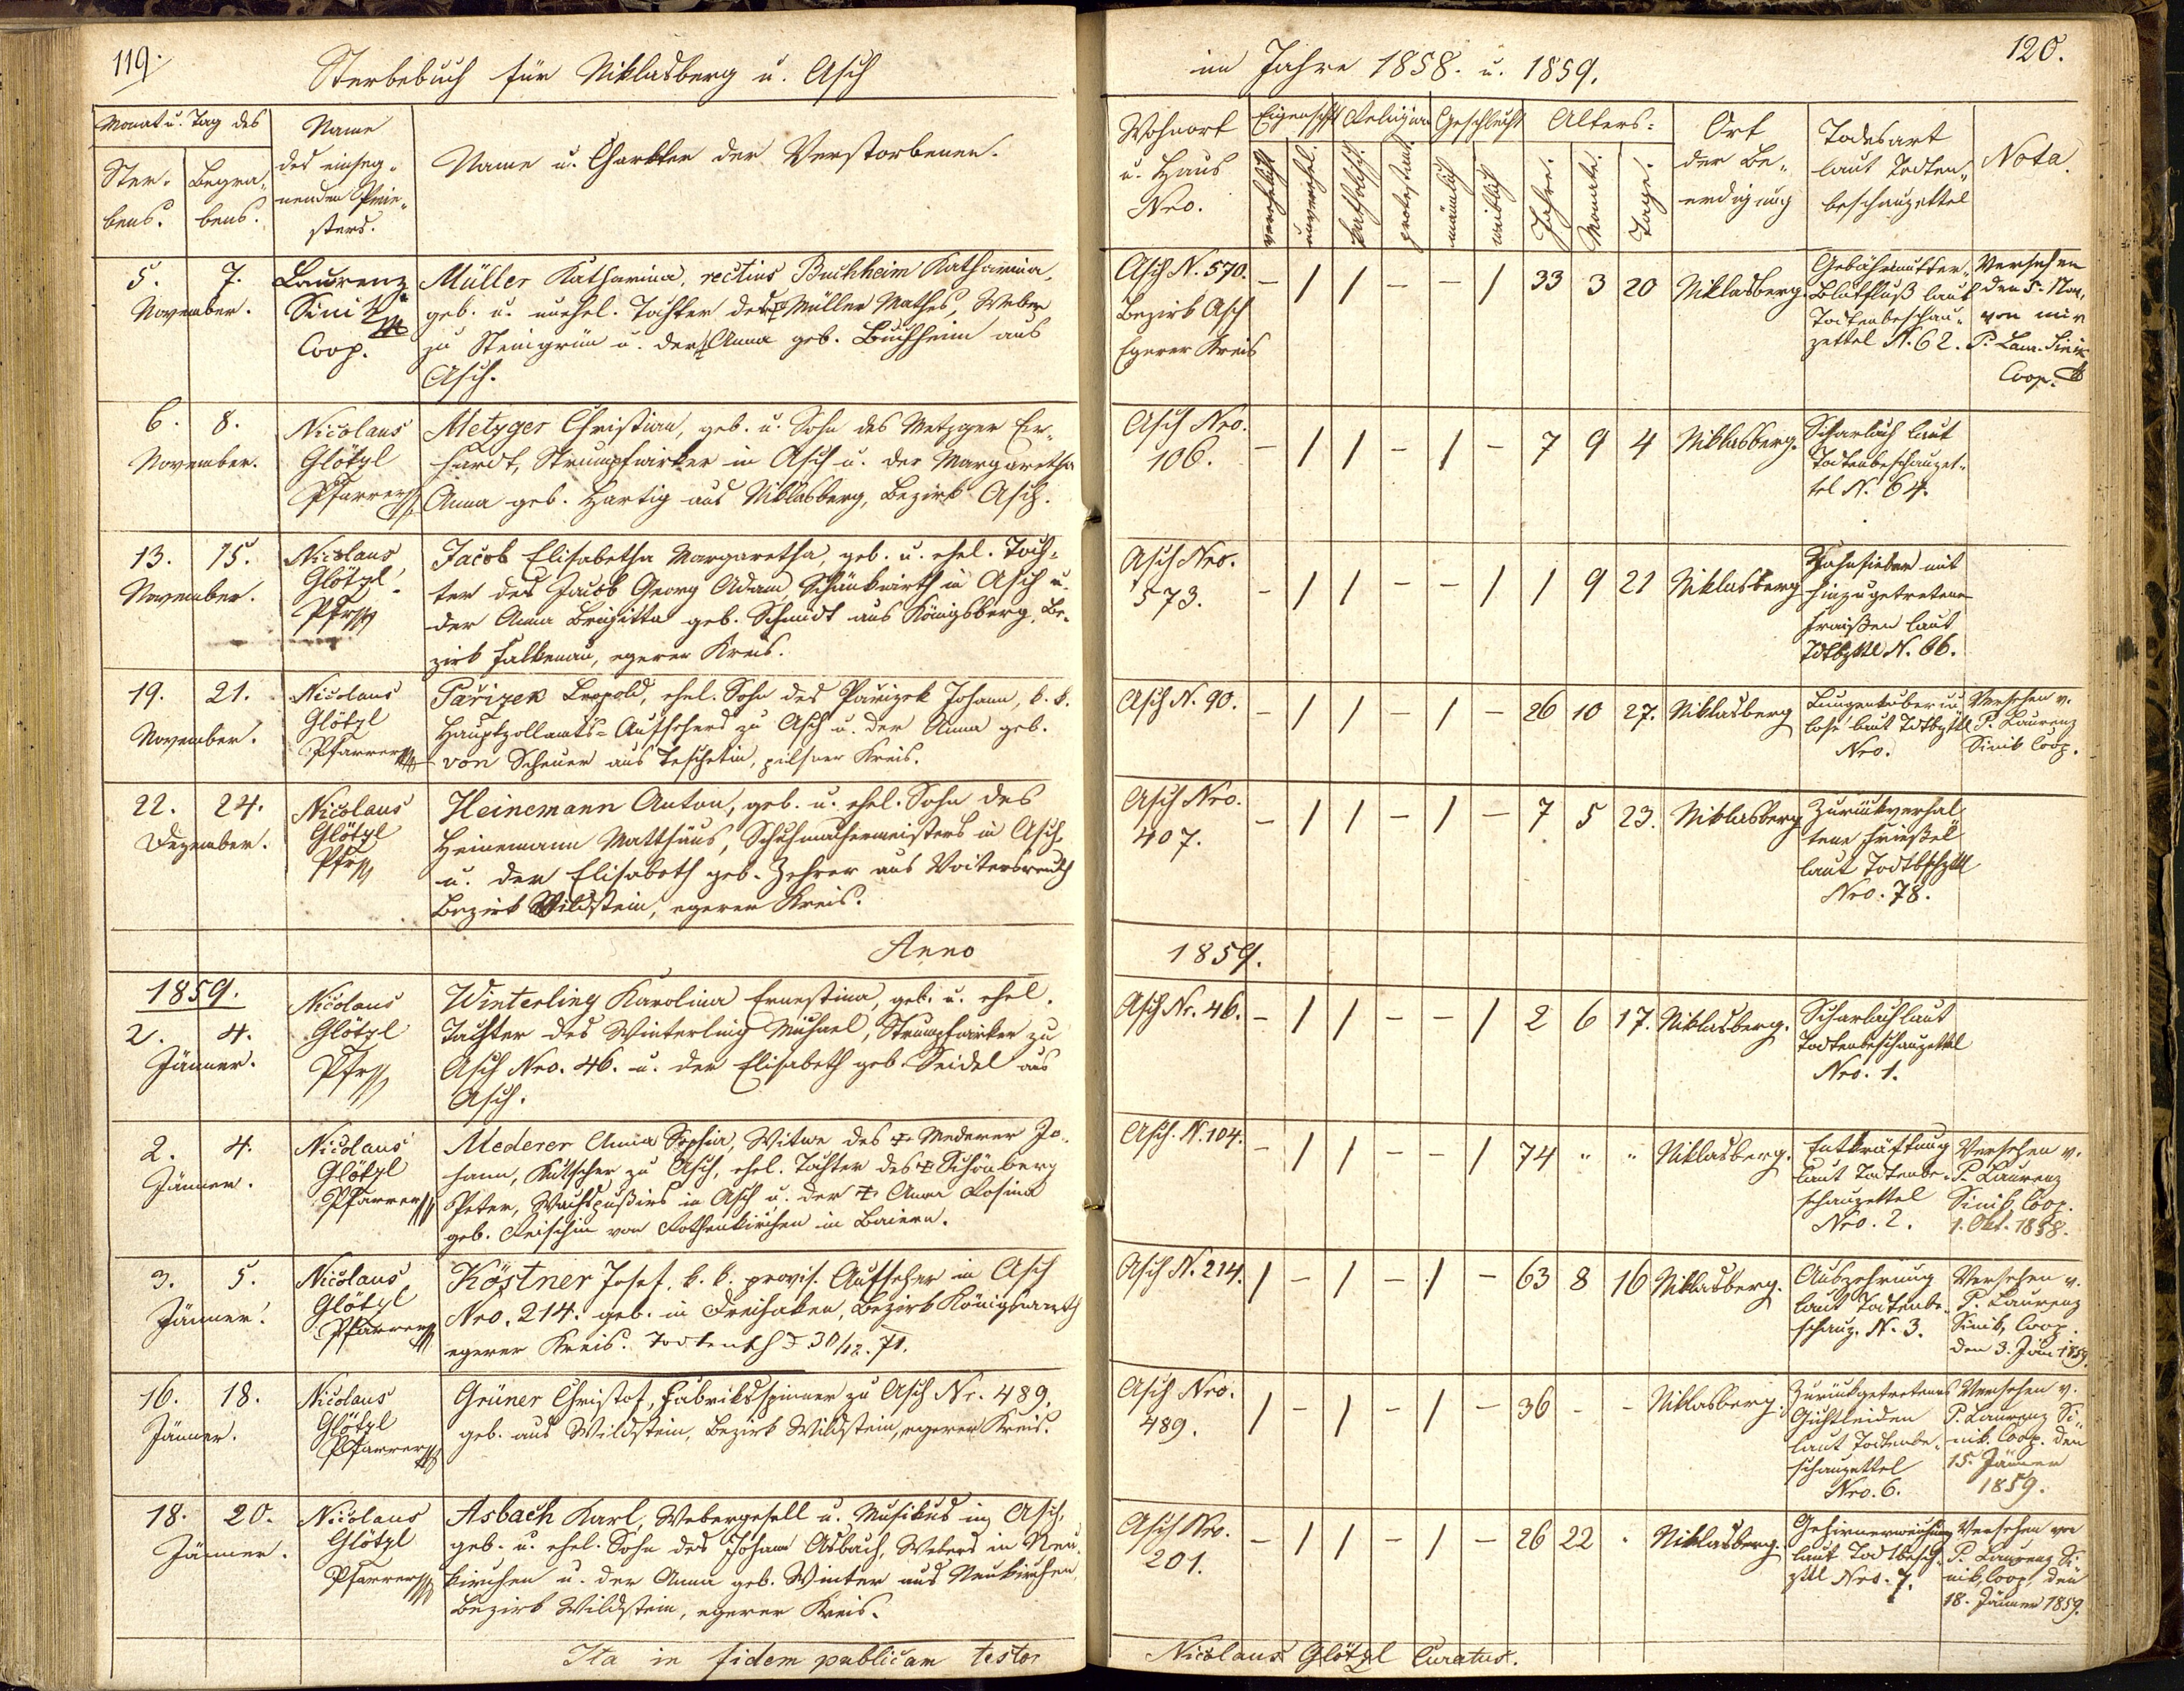 119.
Sterbebuch für Niklasberg u. Asch
Monat u. Tag des
Ster-
bens.
Begra-
bens.
Name
des einseg-
nenden Prie-
sters.
Name u. Charkter der Verstorbenen.
5. 7.
November.
Laurenz
Sinik
Coop.
Müller Katharina, rectius Buchheim Katharina,
geb. u. unehel. Tochter des Müller Mathes, Weber
zu Steingrün u. der Anna geb. Buchheim aus
Asch.
6. 8.
November.
Nicolaus
Glötzl
Pfarrer
Metzger Christian, geb. u. Sohn des Metzger Er-
hardt, Strumpfwirker in Asch u. der Margaretha
Anna geb. Hartig aus Niklasberg, Bezirk Asch.
13. 15.
November.
Nicolaus
Glötzl
Pfr
Jacob Elisabetha Margaretha, geb. u. ehel. Toch-
ter des Jacob Georg Adam, Schänkwirth in Asch u.
der Anna Brigitta geb. Schmidt aus Königsberg, Be-
zirk Falkenau, egerer Kreis.
19. 21.
November.
Nicolaus
Glötzl
Pfarrer
Parizek Leopold, ehel. Sohn des Parizek Johann, k. k.
Hauptzollamts-Aufsehers zu Asch u. der Anna geb.
von Scheuer aus Teschetin, pilsner Kreis.
22. 24.
Dezember.
Nicolaus
Glötzl
Pfr
Heinemann Anton, geb. u. ehel. Sohn des
Heinemann Matthäus, Schuhmachermeisters in Asch,
u. der Elisabeth geb. Zehrer aus Voitersreuth
Bezirk Wildstein, egerer Kreis.
Anno
1859.
2. 4.
Jänner.
Nicolaus
Glötzl
Pfr
Winterling Karolina Ernestina, geb. u. ehel.
Tochter des Winterling Michael, Strumpfwirker zu
Asch Nro. 46. u. der Elisabeth geb. Seidel aus
Asch.
2. 4.
Jänner.
Nicolaus
Glötzl
Pfarrer
Mederer Anna Sophia, Witwe des † Mederer Jo-
hann, Kutscher zu Asch, ehel. Tochter des † Schönberg
Peter, in Asch u. der † Anna Rosina
geb. von Rothenkirchen in Baiern.
3. 5.
Jänner.
Nicolaus
Glötzl
Pfarrer
Köstner Josef, k. k. provis. Aufseher in Asch
Nro. 214. geb. in Dreihaken, Bezirk Königswarth
egerer Kreis. 30/12. 71.
16. 18.
Jänner.
Nicolaus
Glötzl
Pfarrer
Grüner Christof, Fabriksspinner zu Asch Nr. 489,
geb. aus Wildstein, Bezirk Wildstein, egerer Kreis.
18. 20.
Jänner.
Nicolaus
Glötzl
Pfarrer
Asbach Karl, Webergesell u. Musikus in Asch,
geb. u. ehel. Sohn des Johann Asbach, Webers in Neu-
kirchen u. der Anna geb. Winter aus Neukirchen,
Bezirk Wildstein, egerer Kreis.
Ita in fidem publicam testor
im Jahre 1858. u. 1859.
120.
Wohnort
u. Haus
Nro.
Eigenschft Religion Geschlecht Alters:
verehelicht
unverehel.
katholisch.
protestant.
männlich
weiblich
Jahre.
Monate.
Tage.
Ort
der Be-
erdigung
Todesart
laut Todten-
beschauzettel
Nota.
Asch N. 570.
Bezirk Asch
Egerer Kreis
- / / - - / 33 3 20 Niklasberg.
Gebährmutter-
Blutfluß laut
Todtenbeschau-
zettel N. 62.
Versehen
den 5. Nov.
von mir
P. Laur. Sinik
Coop.
Asch Nro.
106.
- / / - / - 7 9 4 Niklasberg.
Scharlach laut
Todtenbeschauzet-
tel N. 64.
Asch Nro.
573.
- / / - - / 1 9 21 Niklasberg
Zahnfieber mit
hinzugetretenen
Fraißen laut
Tdtbzttl N. 66.
Asch N. 90.
- / / - / - 26 10 27. Niklasberg
Lungentuberku-
lose laut Tdtbzttl
Nro.
Versehen v.
P. Laurenz
Sinik Coop.
Asch Nro.
407.
- / / - / - 7 5 23. Niklasberg
Zurückverhal-
tene Frießel
laut Todtbschzttl
Nro. 78.
1859.
Asch Nr. 46.
- / / - - / 2 6 17. Niklasberg.
Scharlach laut
Todtenbeschauzettel
Nro. 1.
Asch. N. 104.
- / / - - / 74 " " Niklasberg.
Entkräftung
laut Todtenbe-
schauzettel
Nro. 2.
Versehen v.
P. Laurenz
Sinik, Coop.
1. Okt. 1858.
Asch N. 214.
/ - / - / - 63 8 16 Niklasberg.
Auszehrung
laut Todtenbe-
schauz. N. 3.
Versehen v.
P. Laurenz
Sinik, Coop.
den 3. Jän 1859.
Asch Nro.
489.
/ - / - / - 36 - - Niklasberg.
Zurückgetretenes
Gichtleiden
laut Todtenbe-
schauzettel
Nro. 6.
Versehen v.
P. Laurenz Si-
nik. Coop. den
15. Jänner
1859.
Asch Nro.
201.
- / / - / - 26 22 . Niklasberg.
Gehirnerweichung
laut Todtbesch-
zttl Nro. 7.
Versehen von
P. Laurenz Si-
nik, Coop, den
18. Jänner 1859.
Nicolaus Glötzl Curatus.